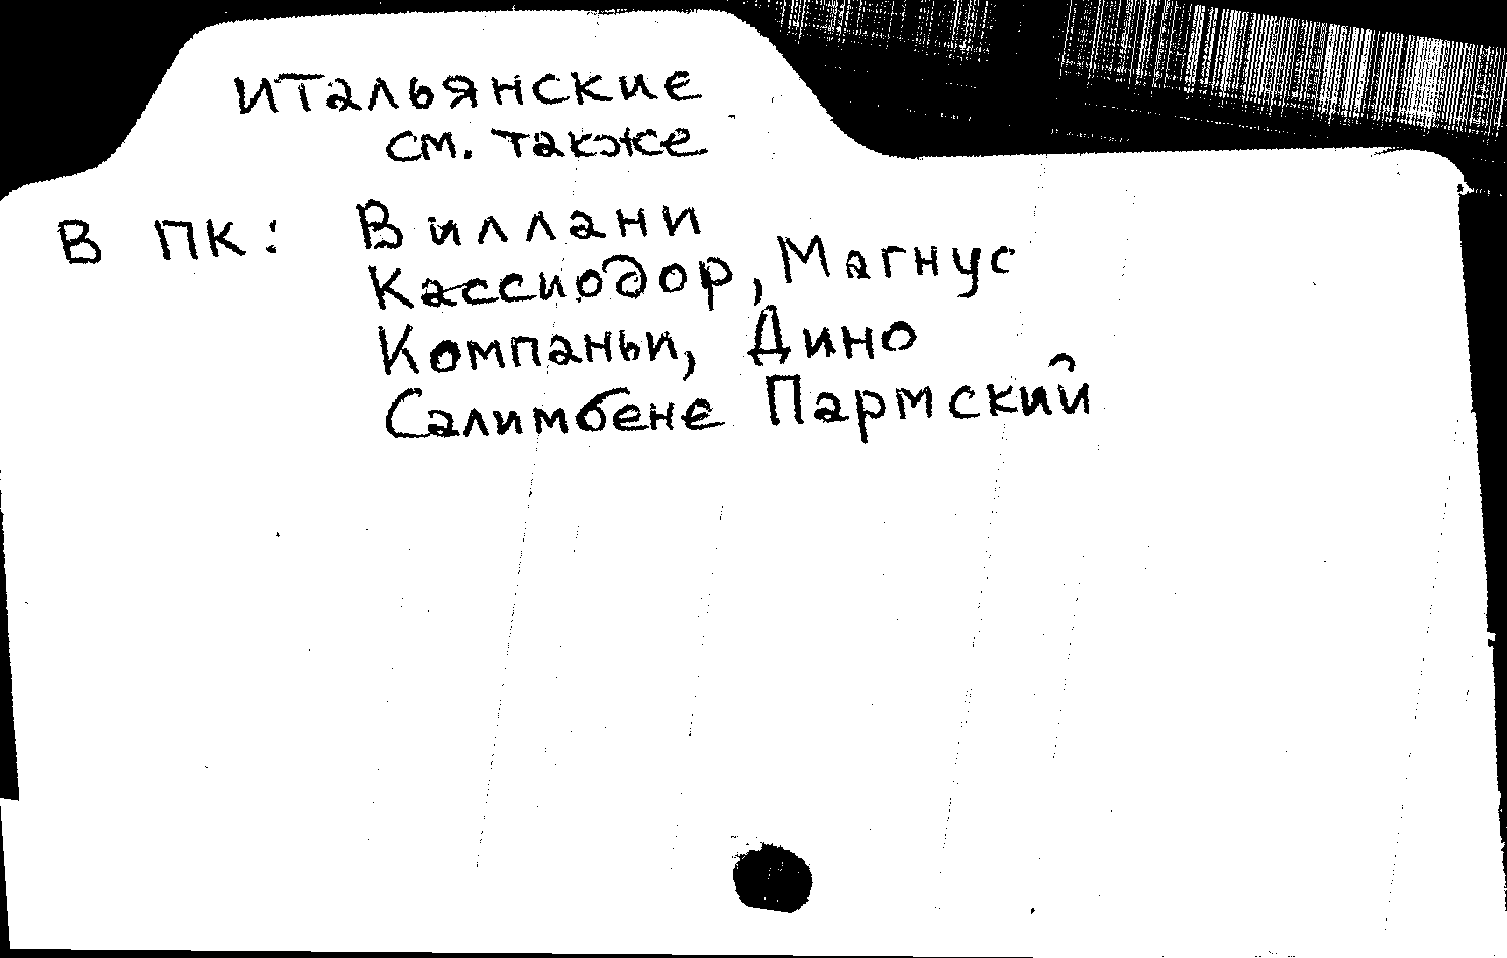 итальянские
см. также
В ПК: Виллани
Кассиодор, Магнус
Компаньи, Дино
Салимбене Пармский